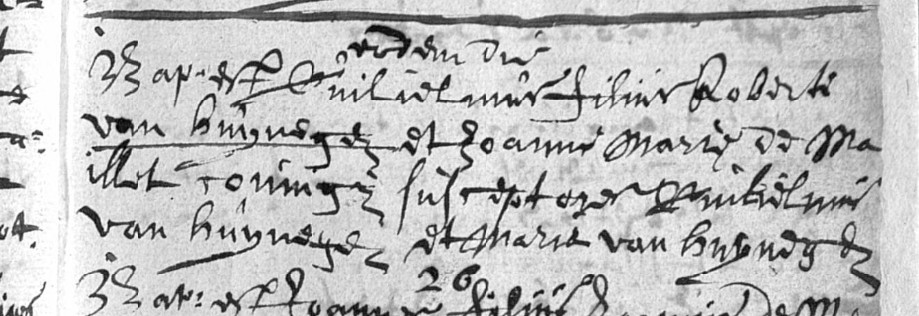 eodem die
Bap: est Guilielmus filius Roberti
van huÿneges et Joanne Marie de Ma
illet coningz susceptores Guilielmus
van huÿneges et Marie van huÿneges
26
Bap: est Joannes filius